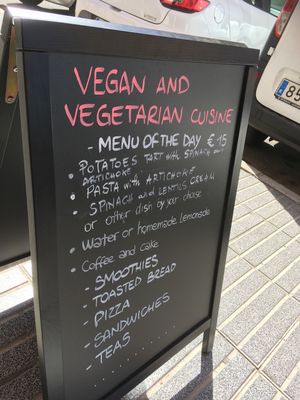 VEGAN AND
VEGETARIAN CUISINE
- MENU OF THE DAY € 15
• POTATOES TART with SPINACH and
ARTICHOKE
• PASTA with ARTICHOKE
• SPINACH and LENTILS CREAM
or other dish by your choose
• Water or homemade Lemonade
• Coffee and cake
- SMOOTHIES
- TOASTED BREAD
- PIZZA
- SANDWICHES
- TEAS